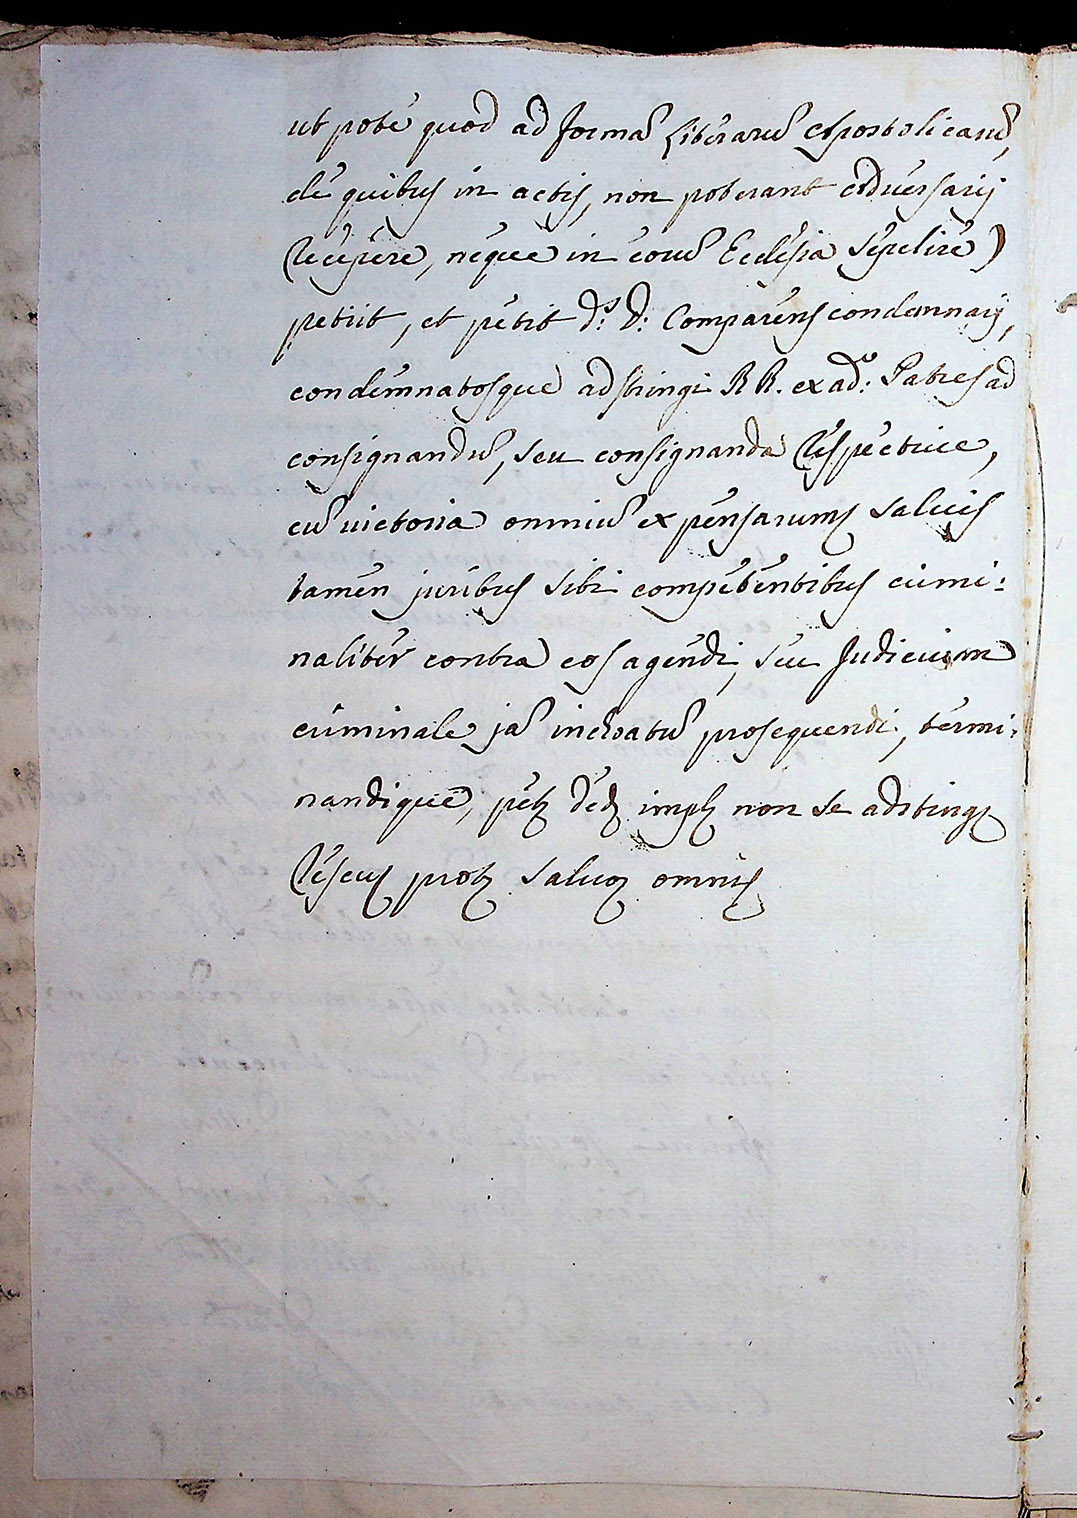 ut poté quod ad formã Literarũ Apostolicarũ,
de quibus in actis, non poterant Adversarij
Recipere, neque in eorũ Ecclesia Sepelire)
petiit, et petit D.s D: Comparens condemnarij,
condemnatosque adstringi RR. ex ad.o: Patres ad
consignandũ, seu consignanda Respective,
cũ victoria omniũ expensarum, salvis
tamen juribus sibi competentibus crimi:
naliter contra eos agendi, seu Judicium
criminale jã inchoatũ prosequendi, termi:
nandique, pet ded impl non se adsting
Reseru prot salvo omnis